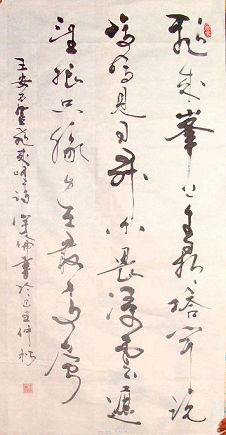 飛来峯上千尋塔聞説
鸡鸣見日昇不畏浮雲遮
望眼只緣身在最高層
王安石登飛来峰詩 書於己丑仲秋